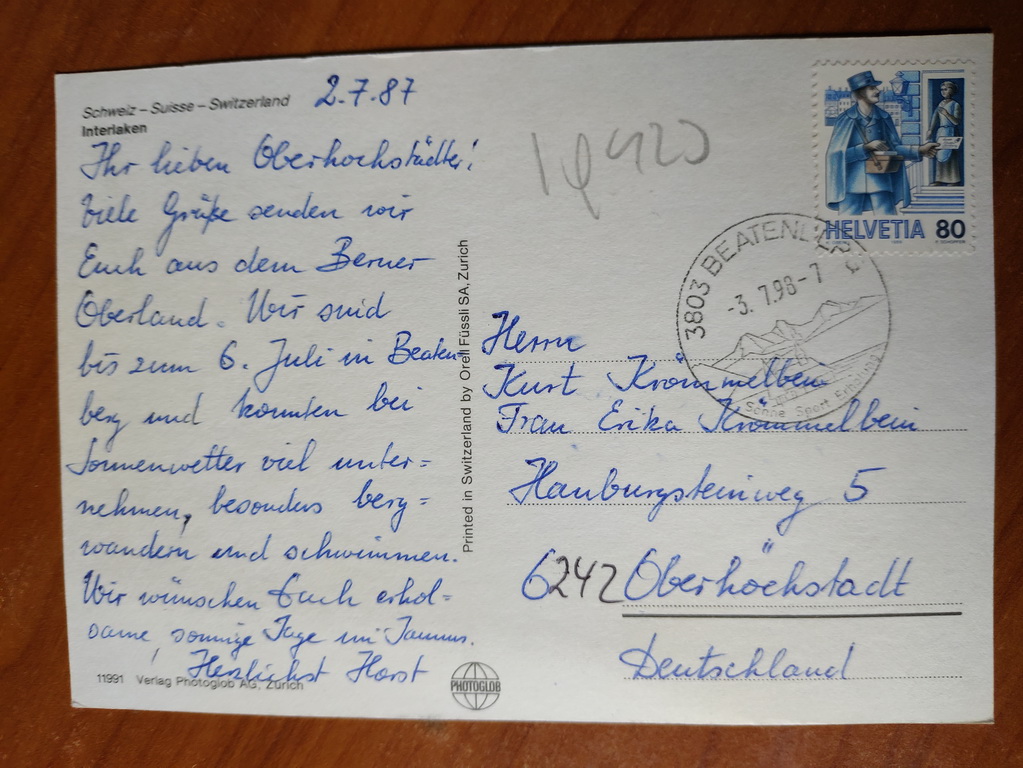 Schweiz – Suisse – Switzerland
Interlaken
2.7.87
Ihr lieben Oberhochstädter!
Viele Grüße senden wir
Euch aus dem Berner
Oberland. Wir sind
bis zum 6. Juli in Beaten-
berg und konnten bei
Sonnenwetter viel unter=
nehmen, besonders berg=
wandern und schwimmen.
Wir wünschen Euch erhol=
same, sonnige Tage im Taunus.
Herzlichst Horst
11991 Verlag Photoglob AG, Zürich
PHOTOGLOB
Printed in Switzerland by Orell Füssli SA, Zürich
HELVETIA 80
3803 BEATENBERG
-3. 7.98-7
Sonne Sport Erholung
Herrn
Kurt Krömmelbein
Frau Erika Krömmelbein
Hauburgsteinweg 5
6242 Oberhöchstadt
Deutschland